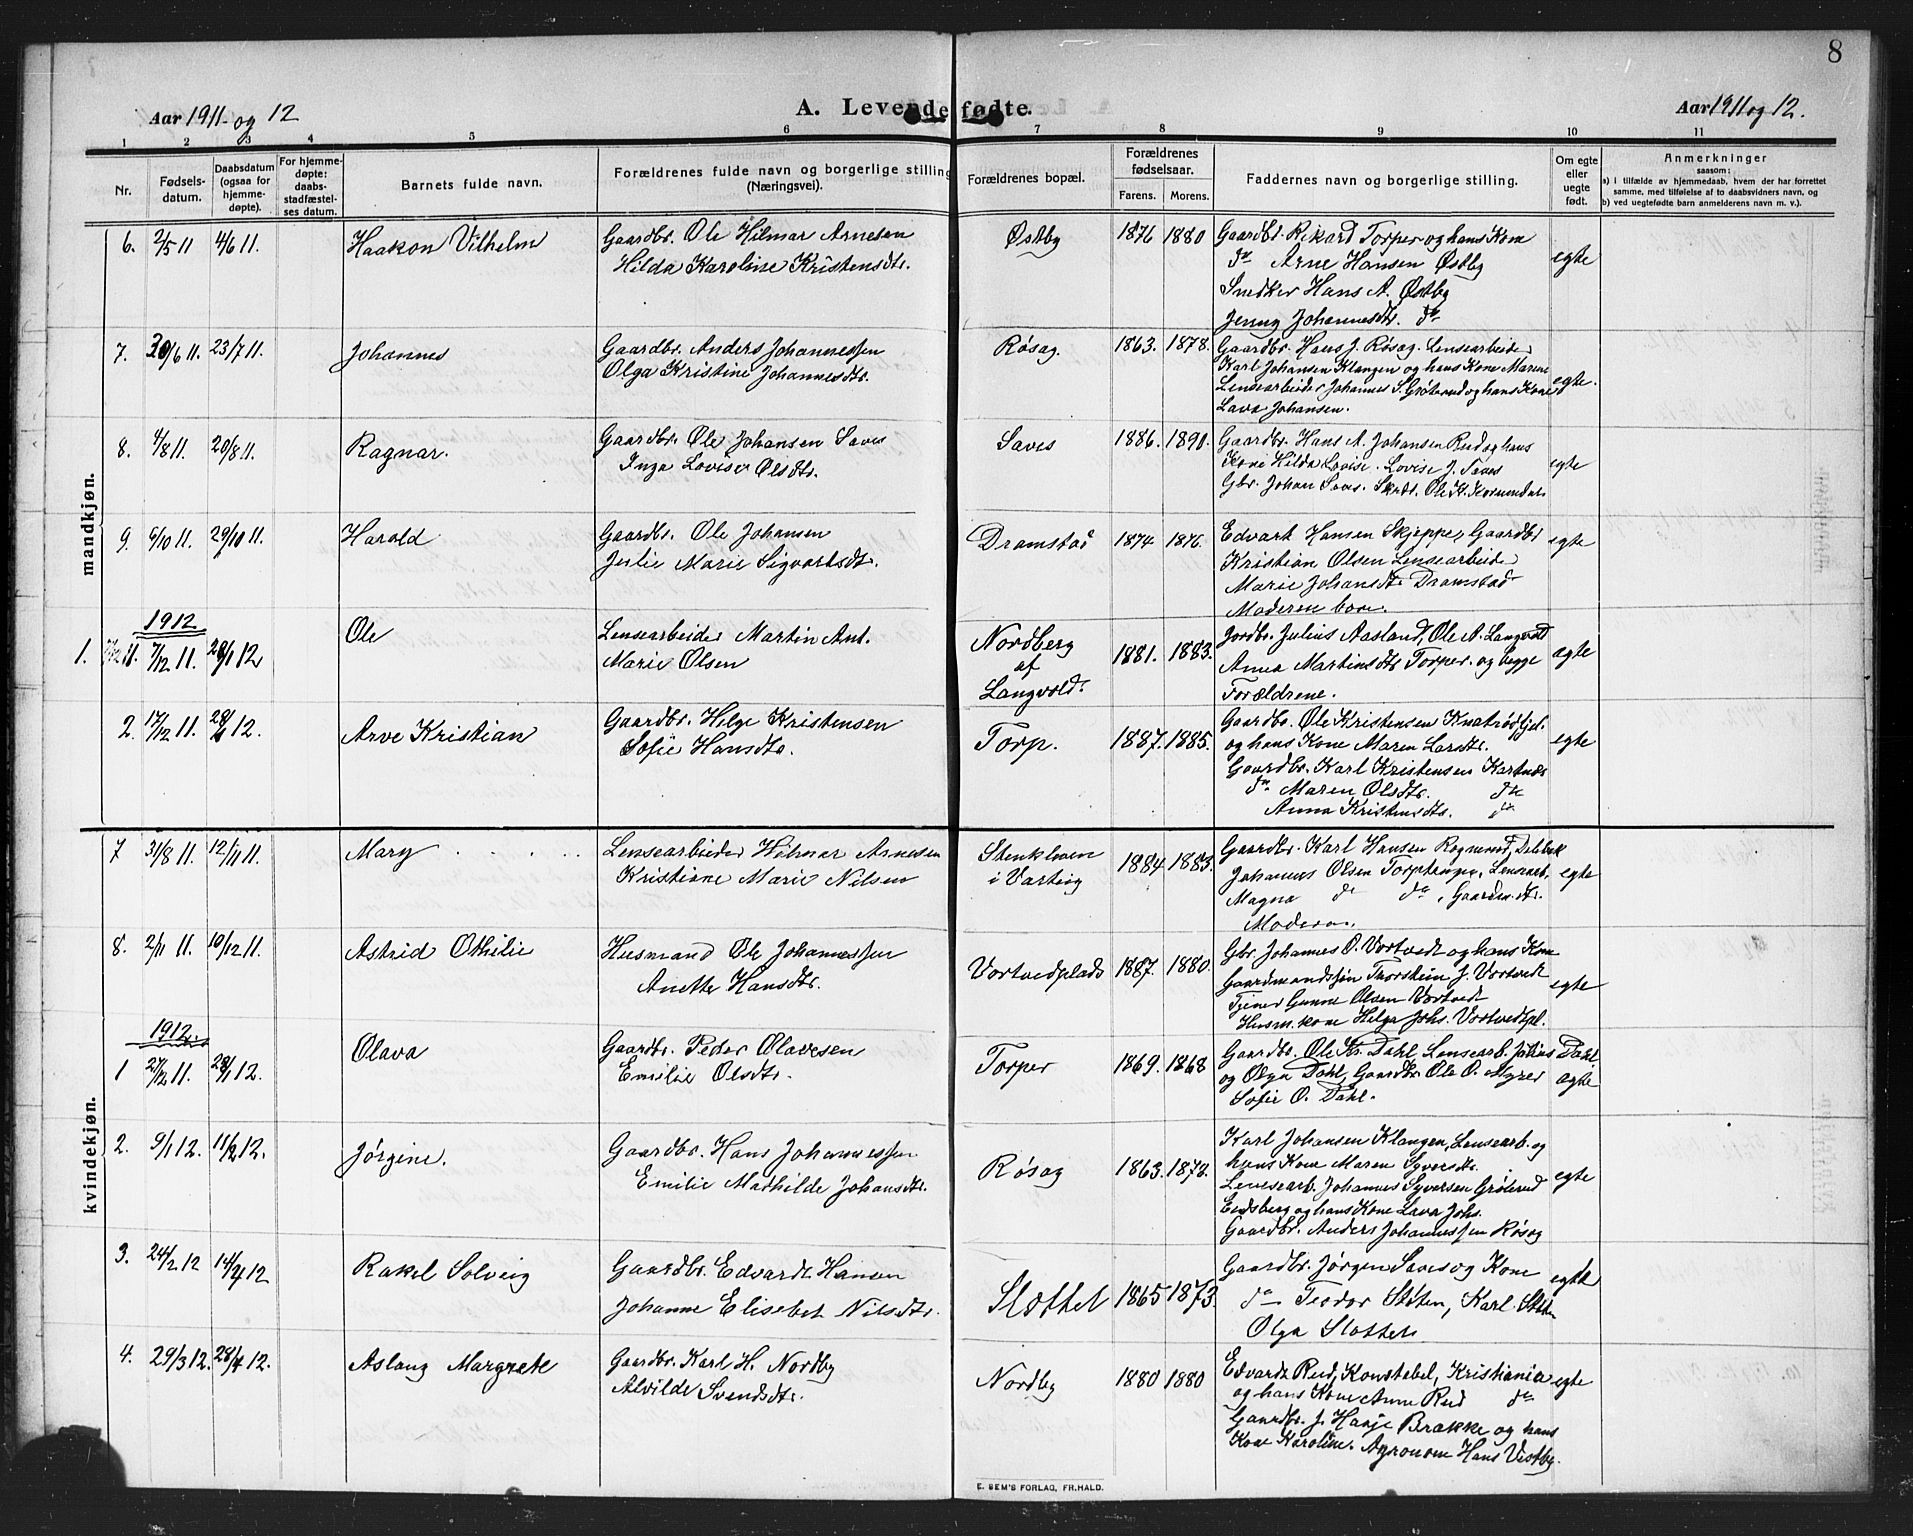 8
Aar 1911 og 12
A. Levende fødte.
Aar 1911 og 12.
1 2 3 4 5 6 7 8 9 10 11
Nr.
Fødsels-
datum.
Daabsdatum
(ogsaa for
hjemme-
døpte).
For hjemme-
døpte:
daabs-
stadfæstel-
ses datum.
Barnets fulde navn.
Forældrenes fulde navn og borgerlige stilling
(Næringsvei).
Forældrenes bopæl.
Forældrenes
fødselsaar.
Farens. Morens.
Faddernes navn og borgerlige stilling.
Om egte
eller
uegte
født.
Anmerkninger
saasom:
a) i tilfælde av hjemmedaab, hvem der har forrettet
samme, med tilføielse af to daabsvidners navn, og
b) ved uegtefødte barn anmelderens navn m. v.).
mandkjøn.
6. 2/5 11 4/6 11. Haakon Vilhelm
Gaardbr. Ole Hilmar Arnesen
Hilda Karoline Kristensdtr.
Østby
1876 1880
Gaardbr. Rikard Torper og hans Kone
do Arne Hansen Østby
Snedker Hans A. Østby
Jenny Johannesdtr. do
egte
7. 30/6 11. 23/7 11. Johannes
Gaardbr. Anders Johannessen
Olga Kristine Johannesdtr.
Røsag.
1863. 1878.
Gaardbr. Hans J. Røsag. Lensearbeider
Karl Johansen Klangen og hans Kone Maren
Lensearbeider Johannes S. Grøterud og hans Kone
Lava Johansen.
egte.
8. 4/8 11. 20/8 11. Ragnar.
Gaardbr. Ole Johansen Saves
Inga Lovise Olsdtr.
Saves
1886. 1890.
Gaardbr. Hans A. Johansen Rud og hans
Kone Hilda Lovise. Lovise J. Saves
Gbr. Johan Saves.
egte
9. 6/10 11. 29/10 11. Harald
Gaardbr. Ole Johansen
Julie Marie Sigvartsdtr.
Dramstad
1874 1876.
Edvart Hansen Skjeppe, Gaardbr
Kristian Olsen Lensearbeider
Marie Johansdtr Dramstad
Moderen bar.
egte
1912
1. 7/12 11. 7/12 11. 28/1 12 Ole
Lensearbeider Martin Ant.
Marie Olsen
Nordberg
af
Langvold.
1881. 1883.
Jordbr. Julius Aasland, Ole A. Langvold
Anna Martinsdtr Torper. og begge
Forældrene.
ægte
2. 17/12 11. 28/ 12. Arve Kristian
Gaardbr. Helge Kristensen
Sofie Hansdtr.
Torp.
1887. 1885.
Gaardbr. Ole Kristensen
og hans Kone Maren Larsdtr.
Gaardbr. Karl Kristensen Kartnæs
do Maren Olsdtr. do
Anna Kristensdtr. do
egte
kvindekjøn.
7 31/8 11. 12/11 11. Mary
Lensearbeider Hilmar Arnesen
Kristiane Marie Nilsen
Stenkloven
i Varteig
1884 1883.
Gaardbr. Karl Hansen
Johannes Olsen
Magna do do
Moderen.
egte
8. 2/11 11. 10/12 11. Astrid Othilie
Husmand Ole Johannessen
Anette Hansdtr.
Vortvedplads
1887. 1880.
Gbr. Johannes O. Vortvedt og hans Kone
Gaardmandssøn Thorstein J. Vortvedt
Tjener Gunne Olsen Vortvedt
Husm.kone Helga Johs. Vortvedtpl.
egte
1912.
1 27/12 11. 28/1 12. Olava
Gaardbr. Peder Olavesen
Emilie Olsdtr.
Torper
1869. 1868
Gaardbr. Ole Kr. Dahl, Lensearb. Julius Dahl
og Olga Dahl, Gaardbr Ole O. Myrer
Sofie O. Dahl.
ægte
2. 9/1 12. 11/2 12. Jørgine.
Gaardbr. Hans Johannessen
Emilie Mathilde Johansdtr.
Røsag
1863. 1872.
Karl Johansen Klangen, Lensearb. og
hans Kone Maren Syversdtr.
Lensearb. Johannes Syversen Grøterud
Eidsberg og hans Kone Lava Johs.
Gaardbr. Anders Johannessen Røsag
egte
3. 24/2 12 14/4 12 Rakel Solveig
Gaardbr. Edvardt Hansen
Johanne Elisebet Nilsdtr.
Slottet
1865 1873.
Gaardbr. Jørgen Saves og Kone
do Teodor Sloten, Karl
Olga Slottet
egte
4. 29/3 12. 28/4 12. Aslaug Margrete
Gaardbr. Karl H. Nordby
Alvilde Svendsdtr.
Nordby
1880 1880
Edvardt Rud, Konstabel, Kristiania
og hans Kone Anne Rud do
Gaardbr. J. Haaje Brække og hans
Kone Karoline. Agronom Hans Vestby.
egte
E. SEM'S FORLAG, FR.HALD.